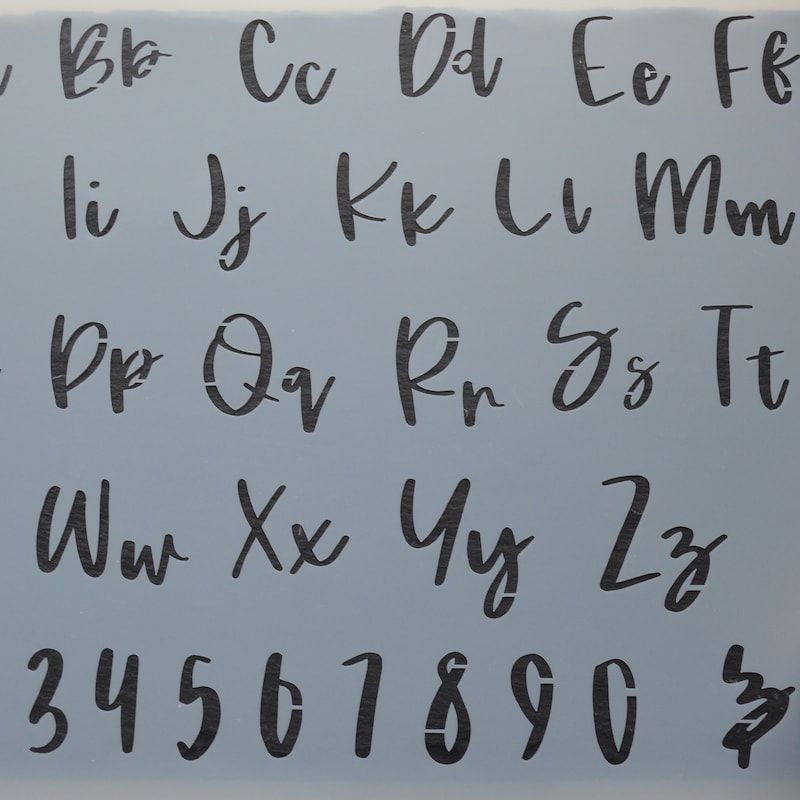 Bb Cc Dd Ee Ff
Ii Jj Kk Ll Mm
Pp Qq Rr Ss Tt
Ww Xx Yy Zz
3 4 5 6 7 8 9 0 &